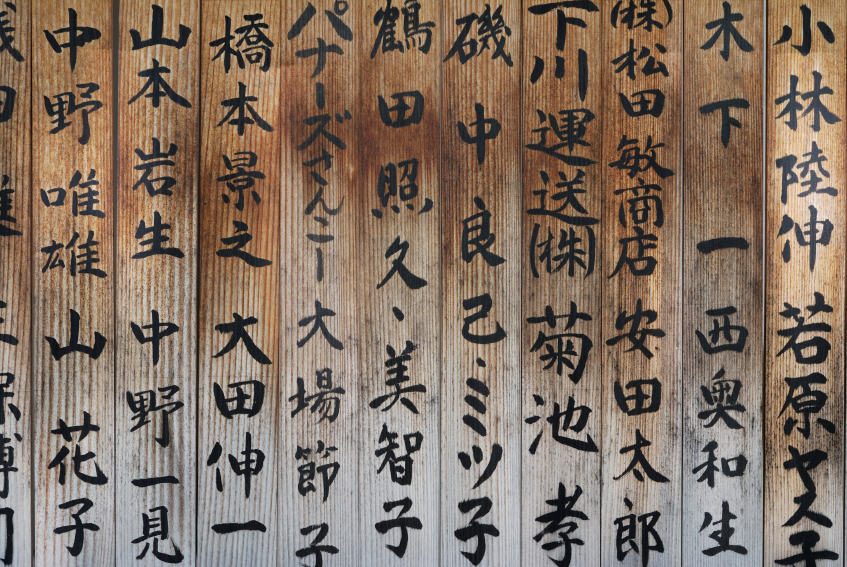 小林陸伸 若原ヤス子
木下 一 西奥和生
(株)松田敏商店 安田太郎
下川運送(株) 菊池 孝
磯中良己、ミツ子
鶴田照久、美智子
パナーズさんこー 大場節子
橋本景之 大田伸一
山本岩生 中野一見
中野唯雄 山 花子